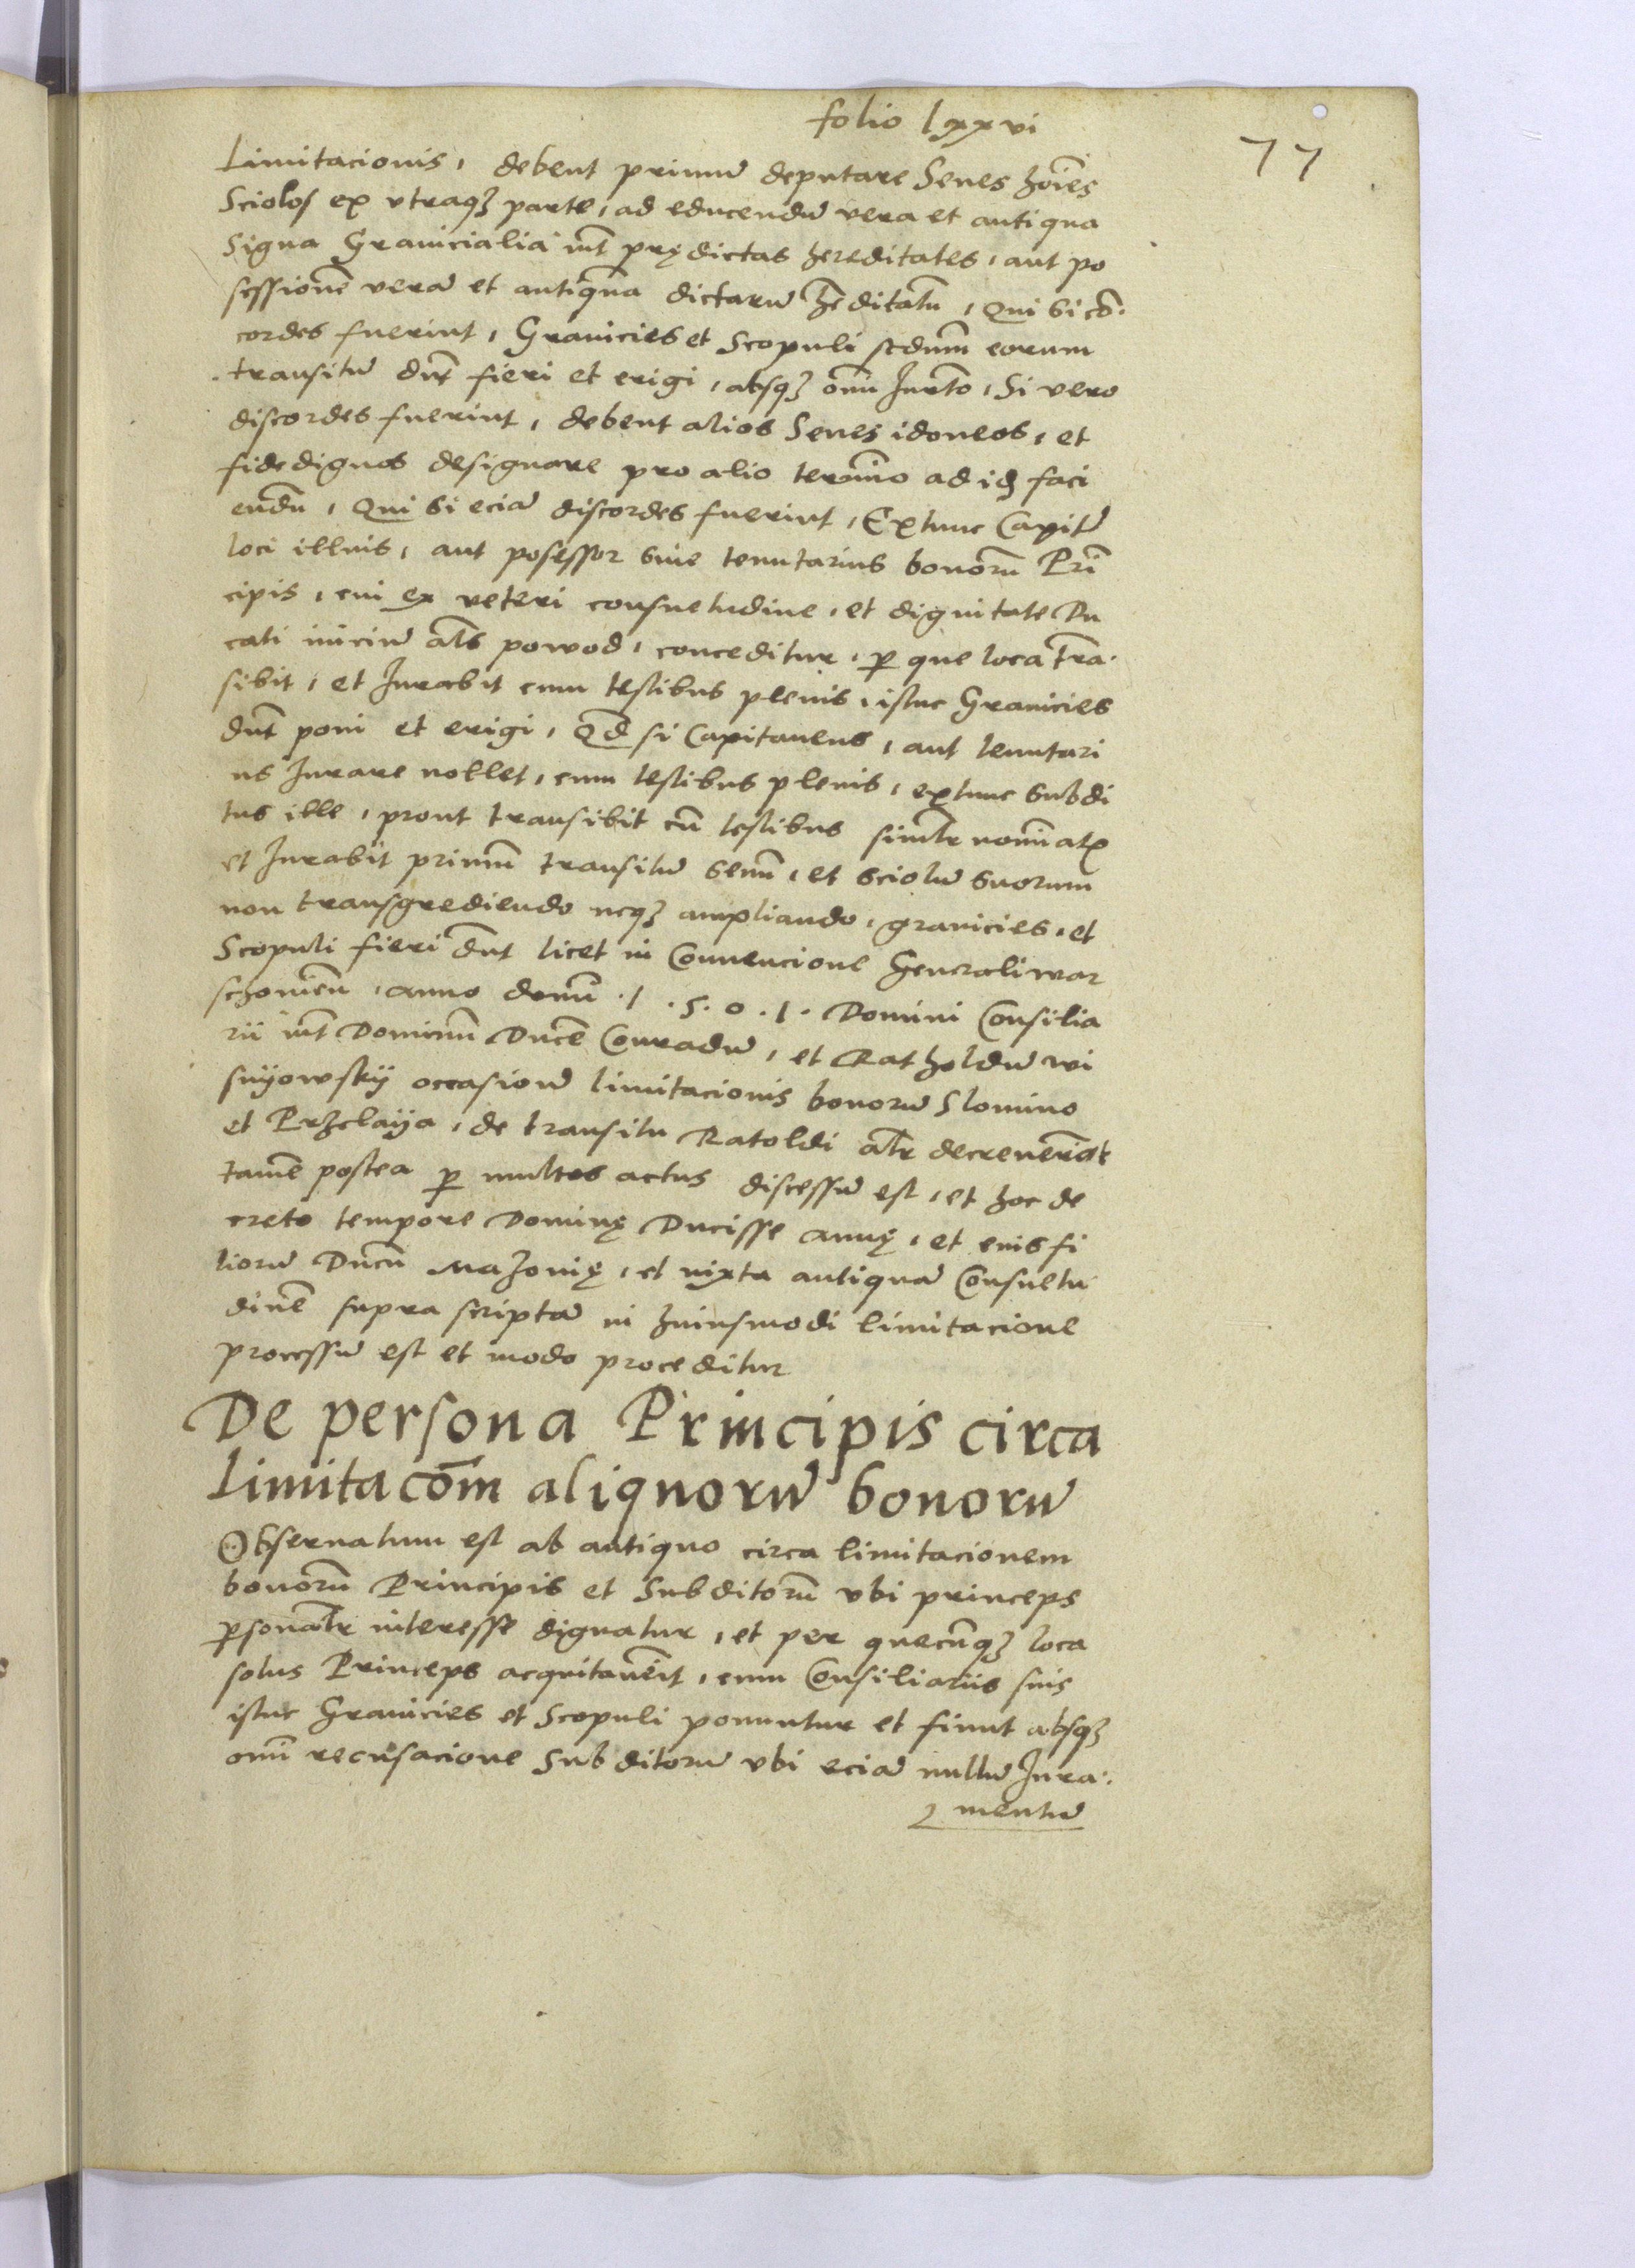 folio lxxvi
77
Limitacionis, debent primū deputare Senes hoīes
Sciolos ex vtraqꝫ parte, ad educendū vera et antiqua
Signa Granicialia int̄ prędictas hereditates, aut po
sessionē verā et antiqua dictarū hēditatū, Qui si cō
cordes fuerint, Granicies et Scopuli scdūm eorum
transitū dn̄t fieri et erigi, absqꝫ omī Jurto, Si vero
discordes fuerint, debent alios Senes idoneos, et
fidedignos designare pro alio termīno ad id faci
endū, Qui si eciā discordes fuerint, Extunc Capit
loci illius, aut posessor siue tenutarius bonorū Prī
cipis, cui ex veteri consuetudine, et dignitate Du
cati iniciū al̄s powod, conceditur, ꝑ que loca trā
sibit, et Jurabit cum testibus plenis, istuc Granicies
dn̄t poni et erigi, Qd̄ si Capitaneus, aut tenutari
us Jurare nollet, cum testibus plenis, extunc Subdi
tus ille, prout transibit cū testibus simlr̄ nomīat
et Jurabit primū transitū senū, et sciolū suorum
non transgrediendo neqꝫ ampliando, granicies, et
Scopuli fieri dn̄t licet in Conuencione Generali war
schouien̄, anno domī .1.5.0.1. Domini Consilia
rii int̄ Dominū Ducē Conradū, et Ratholdū wi
snyowskij occasionē limitacionis bonorū Slomino
et Przelaija, de transitu Ratoldi alr̄ decreuerāt
tamē postea ꝑ multos actus discessū est, et hoc de
creto tempore Dominę Ducisse Annę, et eius fi
liorū Ducū Mazouię, et iuxta antiquā Consuetu
dinē supra scriptā in huiusmodi limitacione
processū est et modo proceditur
De persona Principis circa
Limitacōm aliquorū bonorū
Obseruatum est ab antiquo circa limitacionem
bonorū Principis et Subditorū vbi princeps
ꝑsonalr̄ interesse dignatur, et per quecūqꝫ loca
solus Princeps acquitauērit, cum Consiliariis suis
istuc Granicies et Scopuli ponuntur et fiunt absqꝫ
omī recusacione Subditorū vbi eciā nullū Jura
mentū